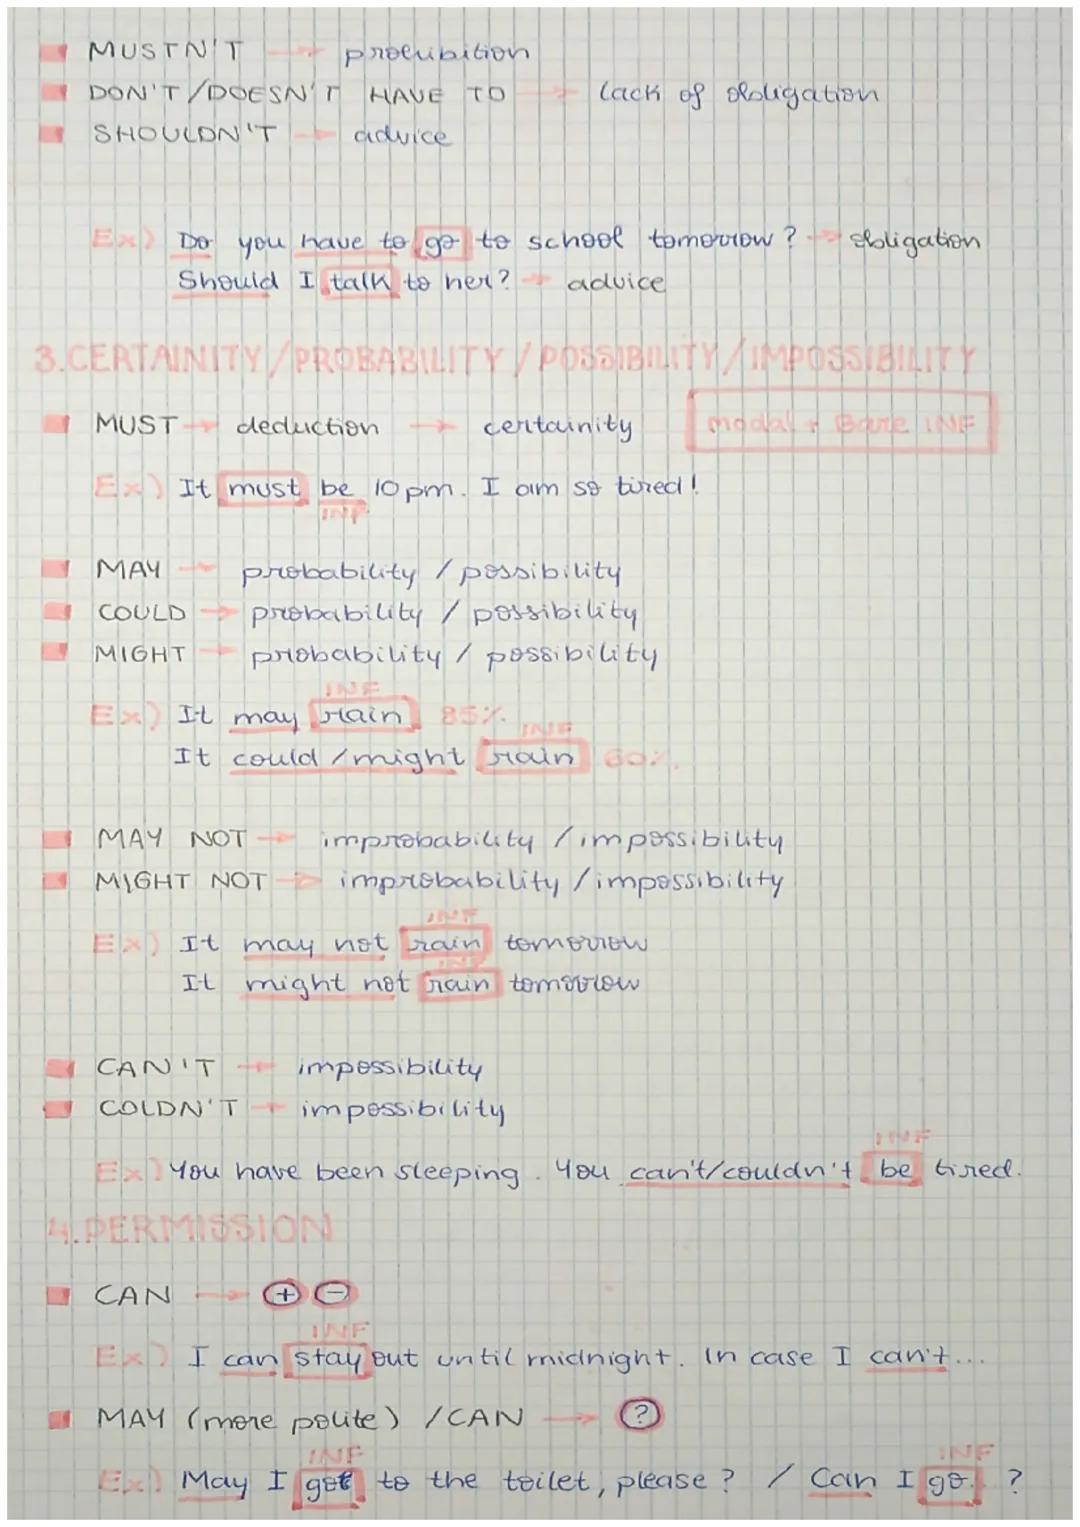 MUSTN'T → prohibition
DON'T/DOESN'T HAVE TO → lack of obligation
SHOULDN'T → advice
Ex) Do you have to go to school tomorrow? → obligation
Should I talk to her? → advice
3.CERTAINITY/PROBABILITY/POSSIBILITY/IMPOSSIBILITY
MUST → deduction → certainity modal + Bare INF
Ex) It must be 10 pm. I am so tired!
INF
MAY → probability / possibility
COULD → probability / possibility
MIGHT → probability / possibility
INF
Ex) It may rain 85%.
INF
It could/might rain 60%.
MAY NOT → improbability / impossibility
MIGHT NOT → improbability / impossibility
INF
Ex) It may not rain tomorrow
INF
It might not rain tomorrow
CAN'T → impossibility
COLDN'T → impossibility
INF
Ex) You have been sleeping. You can't/couldn't be tired.
4.PERMISSION
CAN → + -
INF
Ex) I can stay out until midnight. In case I can't...
MAY (more polite) / CAN → ?
INF INF
Ex) May I got to the toilet, please? / Can I go. ?